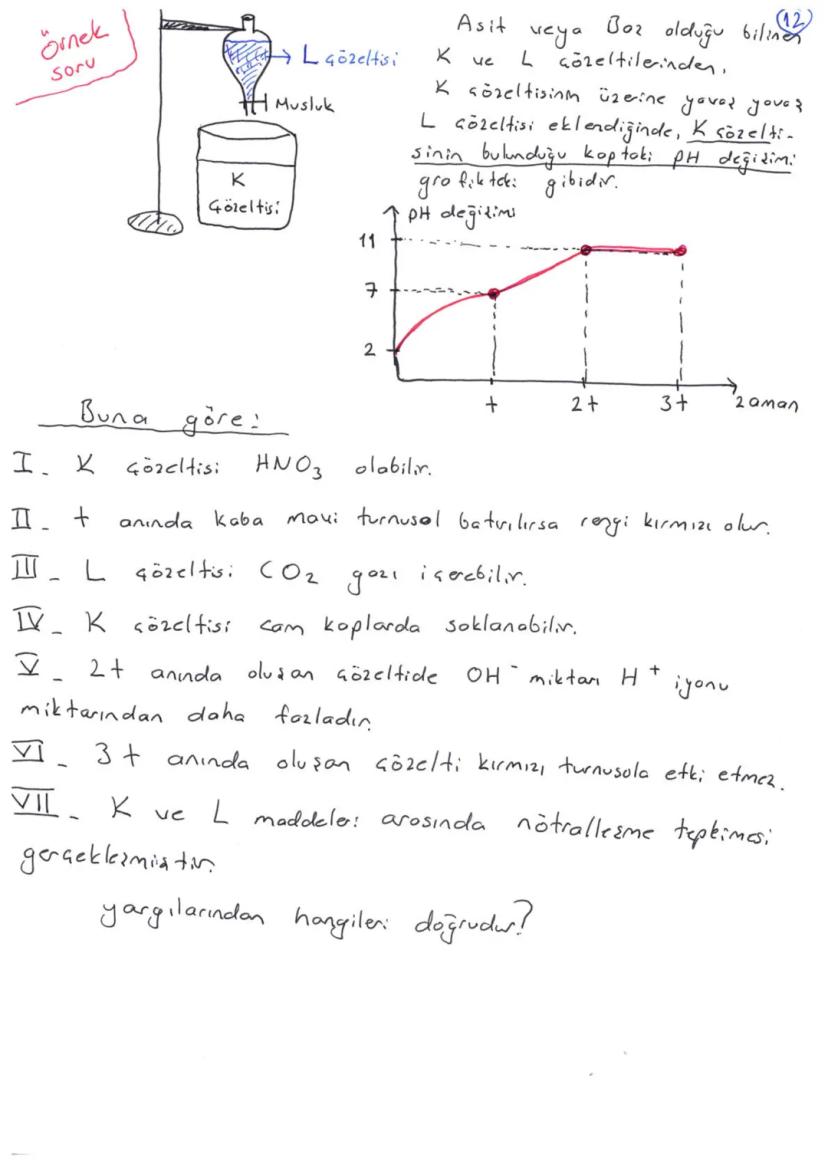 12
Örnek
soru
L çözeltisi
Musluk
K
Çözeltisi
Asit veya Baz olduğu bilinen
K ve L çözeltilerinden,
K çözeltisinin üzerine yavaş yavaş
L çözeltisi eklendiğinde, K çözelti-
sinin bulunduğu kaptaki pH değişimi
grafikteki gibidir.
pH değişimi
11
7
2
t 2t 3t zaman
Buna göre:
I. K çözeltisi HNO3 olabilir.
II. t anında kaba mavi turnusol batırılırsa rengi kırmızı olur.
III. L çözeltisi CO2 gazı içerebilir.
IV. K çözeltisi cam kaplarda saklanabilir.
V. 2t anında oluşan çözeltide OH⁻ miktarı H⁺ iyonu
miktarından daha fazladır.
VI. 3t anında oluşan çözelti kırmızı turnusola etki etmez.
VII. K ve L maddeleri arasında nötralleşme tepkimesi
gerçekleşmiştir.
yargılarından hangileri doğrudur?